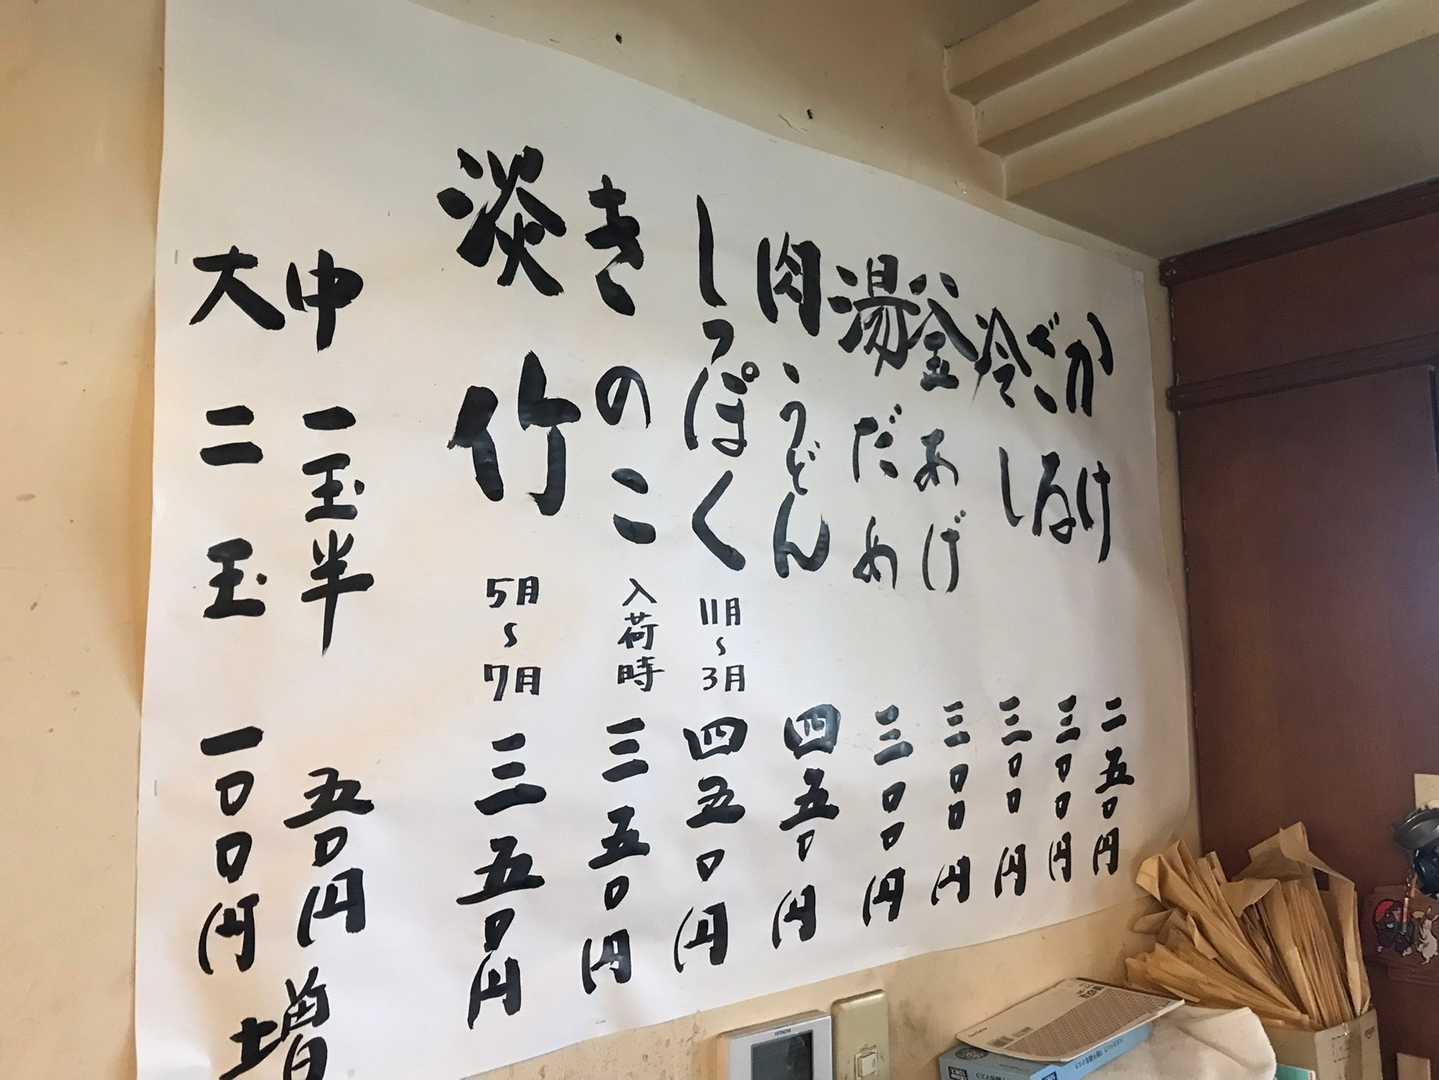 かけ 二五〇円
ざる 三〇〇円
冷し 三〇〇円
釜あげ 三〇〇円
湯だめ 三〇〇円
肉うどん 四五〇円
しっぽく 11月〜3月 四五〇円
きのこ 入荷時 三五〇円
淡竹 5月〜7月 三五〇円
中 一玉半 五〇円増
大 二玉 一〇〇円増
HITACHI